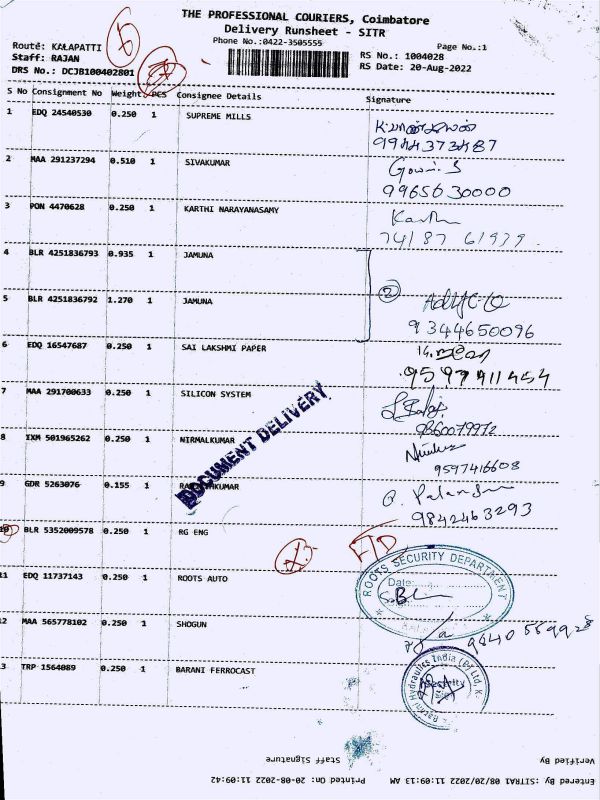 THE PROFESSIONAL COURIERS, Coimbatore
Delivery Runsheet - SITR
Phone No.:0422-3505555
Page No.:1
Route: KALAPATTI
Staff: RAJAN
DRS No.: DCJB100402801
RS No.: 1004028
RS Date: 20-Aug-2022
S No Consignment No Weight PCS Consignee Details Signature
1 EDQ 24540530 0.250 1 SUPREME MILLS
2 MAA 291237294 0.510 1 SIVAKUMAR
9965630000
3 PON 4470628 0.250 1 KARTHI NARAYANASAMY
74187 61939
4 BLR 4251836793 0.935 1 JAMUNA
5 BLR 4251836792 1.270 1 JAMUNA
2
9344650096
6 EDQ 16547687 0.250 1 SAI LAKSHMI PAPER
9597411454
7 MAA 291700633 0.250 1 SILICON SYSTEM
DOCUMENT DELIVERY
8 IXM 501965262 0.250 1 NIRMALKUMAR
9597416608
9 GDR 5263076 0.155 1
9842463293
10 BLR 5352009578 0.250 1 RG ENG
11 EDQ 11737143 0.250 1 ROOTS AUTO
ROOTS SECURITY DEPARTMENT
Date:
12 MAA 565778102 0.250 1 SHOGUN
13 TRP 1564089 0.250 1 BARANI FERROCAST
Barani Hydraulics India (P) Ltd,
Security
Verified By
Staff Signature
Entered By :SITRA1 08/20/2022 11:09:13 AM
Printed On: 20-08-2022 11:09:42